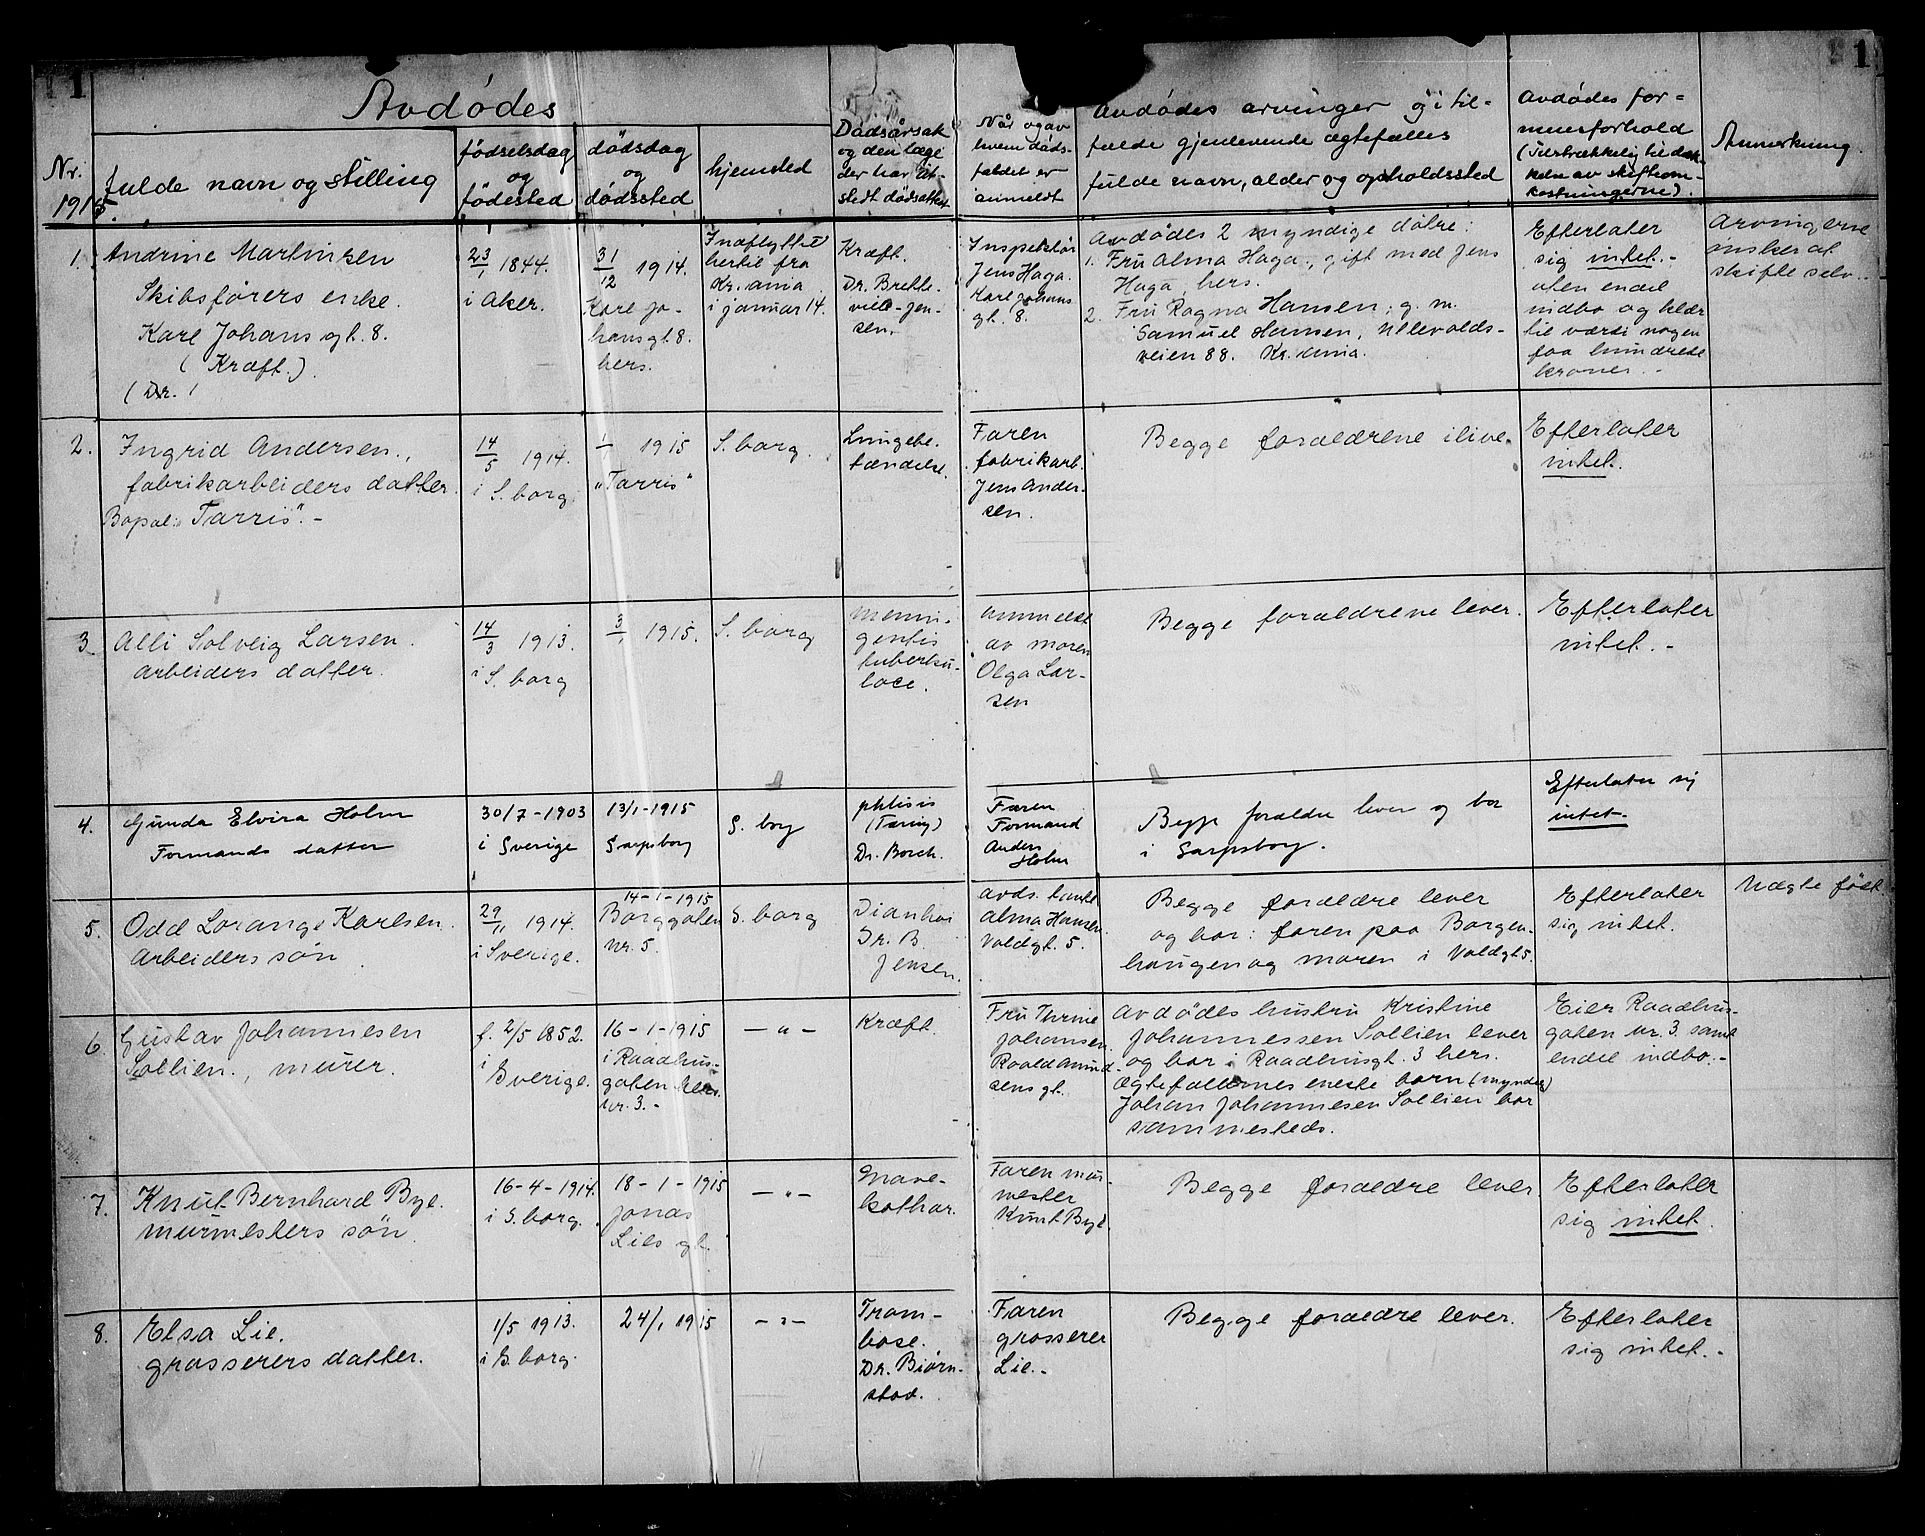 1
1
Avdødes
Nr.
1915.
fulde navn og stilling
fødselsdag
og
fødested
dødsdag
og
dødssted
hjemsted
Dødsårsak
og den læge
der har ut-
stedt dødsattest
Når og av
hvem døds-
faldet er
anmeldt
Avdødes arvinger og i til-
fælde gjenlevende ægtefælles
fulde navn, alder og opholdssted
Avdødes for-
muesforhold
(Tilstrækkelig til dæk-
keln av skifteom-
kostningerne).
Anmerkning.
1.
Andrine Martinsen
Skibsførers enke.
Karl Johans gt. 8.
(Kræft.)
(Dr.
23/1 1844.
i Aker.
31/12 1914.
Karl Jo-
hans gt. 8.
hers.
Indflyttet
hertil fra
Kr.ania
i januar 14.
Kræft.
Dr. Brette-
ville-Jen-
sen.
Inspektør
Jens Haga.
Karl Johans
gt. 8.
Avdødes 2 myndige døtre:
1. Fru Alma Haga, gift med Jens
Haga, hers.
2. Fru Ragna Hansen, g. m.
Samuel Hansen, Ullevolds-
veien 88. Kr.ania.
Efterlater
sig intet.-
uten endel
indbo og klær
til værdi nogen
faa hundrede
kroner.-
Arvingerne
ønsker at
skifte selv.
2.
Ingrid Andersen.,
fabrikarbeiders datter.
Bopæl: "Tarris".-
14/5 1914.
i S.borg.
1915
"Tarris"
S.borg.
Lungebe-
tændelse.
Faren
fabrikarb.
Jens Ander-
sen.
Begge forældrene ilive.
Efterlater
intet.
3.
Alli Solveig Larsen.
Arbeiders datter.
14/3 1913.
i S.borg
3/1 1915.
S.borg
menin-
gentis
tuberku-
loce.
anmeldt
av moren
Olga Lar-
sen
Begge forældrene lever.
Efterlater
intet.-
4.
Gunda Elvira Holm
Formands datter
30/7-1903
i Sverige
13/1-1915
Sarpsborg
S.borg
phtisis
(Tæring)
Dr. Borch.
Faren
Formand
Anders
Holm
Begge forældre lever og bor
i Sarpsborg.
Efterlater sig
intet.-
5.
Odd Lorange Karlsen.
Arbeiders søn
29/11 1914.
i Sverige.
14-1-1915
Borggaten
nr. 5.
S.borg
Dianhoi
Dr. B.
Jensen.
avds. tante
Alma Hansen
Voldgt. 5.
Begge forældre lever
og bor: faren paa Borgen-
haugen og moren i Voldgt 5.
Efterlater
sig intet.
Uægte født
6.
Gustav Johannesen
Sollien., murer.
f. 2/5 1852.
i
Sverige.
16-1-1915
i Raadhus-
gaten hers.
nr. 3.-
-"-
Kræft.
Fru Thrine
Johansen.
Roald Amund-
sens gt.
Avdødes hustru Kristine
Johannessen Sollien lever
og bor i Raadhusgt. 3 hers.
Ægtefællernes eneste barn (myndig)
Johan Johannesen Sollien bor
sammesteds.
Eier Raadhus-
gaten nr. 3 samt
endel indbo.-
7.
Knut Bernhard Bye.
murmesters søn.
16-4-1914.
i S.borg.
18-1-1915
Jonas
Lies gt.
-"-
Mave-
kathar.
Faren mur-
mester
Knut Bye.
Begge forældre lever
Efterlater
sig intet.
8.
Elsa Lie.
grosserers datter.
1/5 1913.
i S.borg.
24/1 1915
-"-
Trom-
bose.
Dr. Biørn-
stad.
Faren
grosserer
Lie.-
Begge forældre lever.
Efterlater
sig intet.-